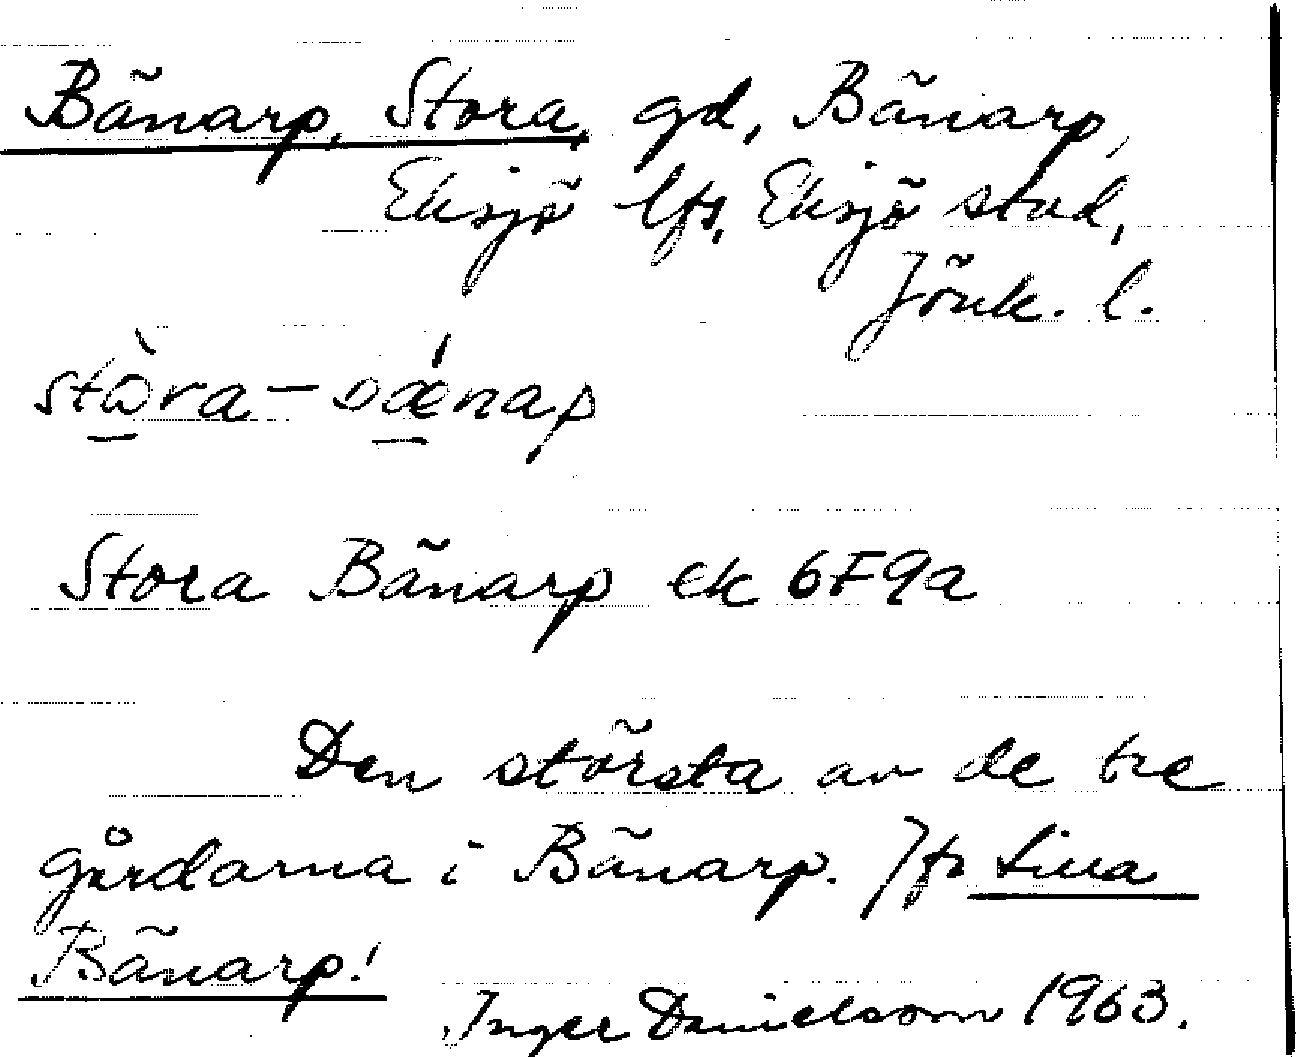 Bänarp, Stora, gd, Bänarp,
Eksjö lfs, Eksjö stad,
Jönk. l.
Stora Bänarp ek 6F9a
Den största av de tre
gårdarna i Bänarp. Jfr Lilla
Bänarp!
Inger Danielsson 1963.